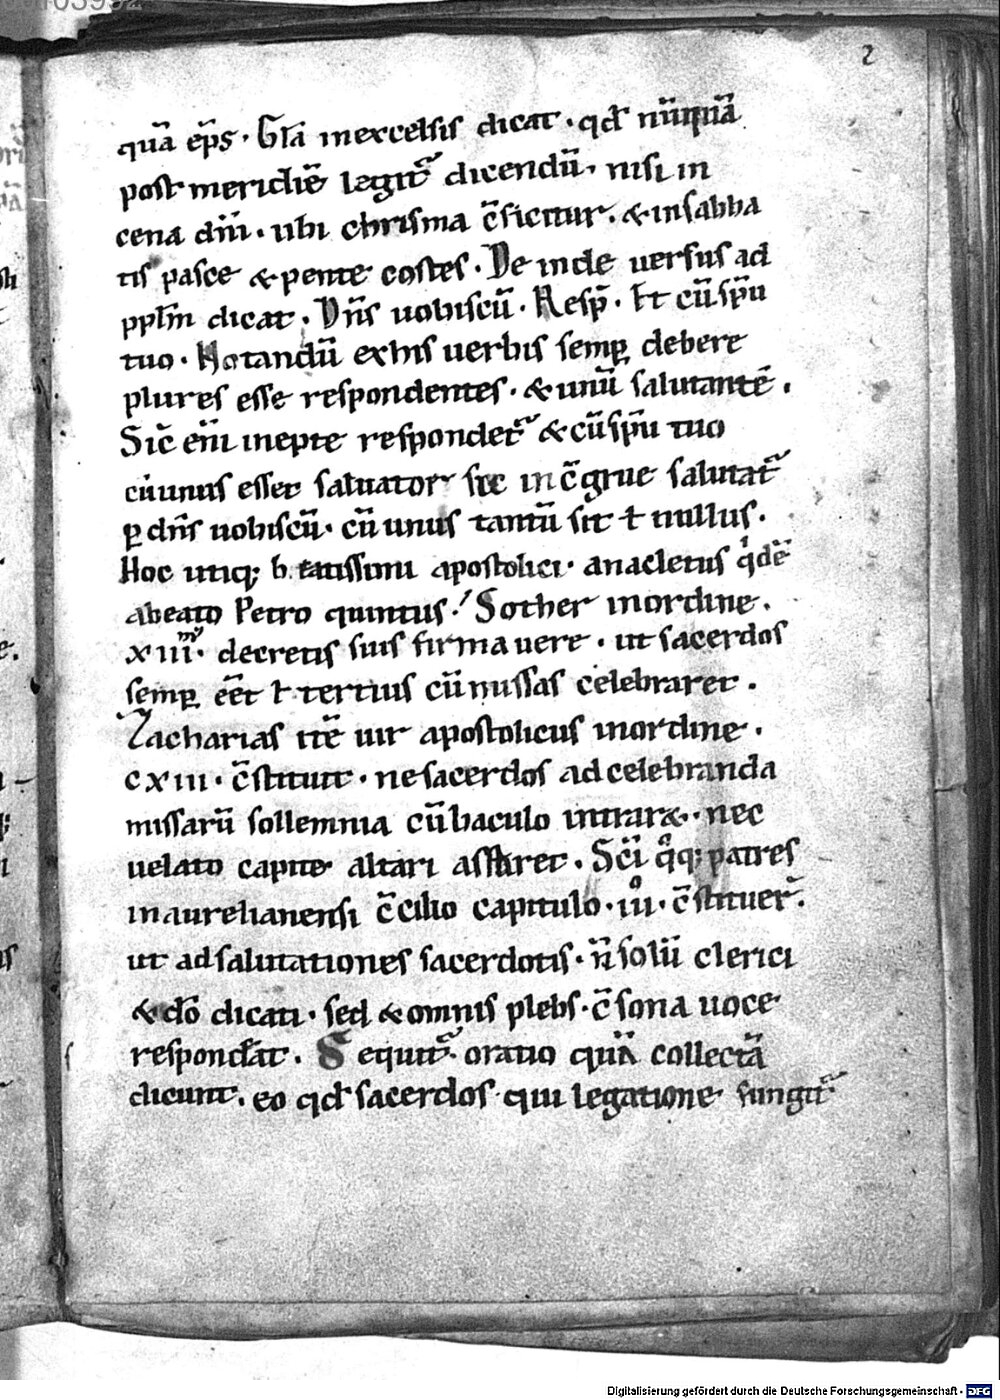 2
quā ep̄s · Gl̄a inexcelsis dicat · qđ nūnquā
post meridiē legit᷑ dicendū · nisi in
cena dn̄i · ubi chrisma c̄ficitur · & insabba
tis pasce & pente costes · De inde uersus ad
ppl̄m dicat · Dn̄s uobiscū · Resp̄ · Et cū sp̄u
tuo · Notandū exhis uerbis semꝑ debere
plures esse respondentes · & unū salutantē .
Sic̄ eni̅ inepte respondet᷑ & cū sp̄u tuo
cū unus esset saluator sic in c̄grue salutat᷑
ꝑ dn̄s uobiscū · cū unus tantū sit ł nullus ·
Hoc utiq; beatissimi apostolici · anacletus qͥdē
abeato Petro quintus · Sother inordine ·
xiii · decretis suis firmauere · ut sacerdos
semꝑ eēt ł tertius cū missas celebraret ·
Zacharias itē uir apostolicus inordine ·
cxiii · c̄stituit · ne sacerdos ad celebranda
missarū sollemnia cū baculo intraret · nec
uelato capite altari astaret · Sc̄i qͦq; patres
inaurelianensi c̄cilio capitulo · iiiͦ · c̄stituer̄ ·
ut ad salutationes sacerdotis · n̄ solū clerici
& dō dicati · sed & omnis plebs · c̄ sona uoce
respondeat · Sequit᷑ oratio quā collectā
dicunt · eo qđ sacerdos qui legatione fungit᷑
Digitalisierung gefördert durch die Deutsche Forschungsgemeinschaft - DFG